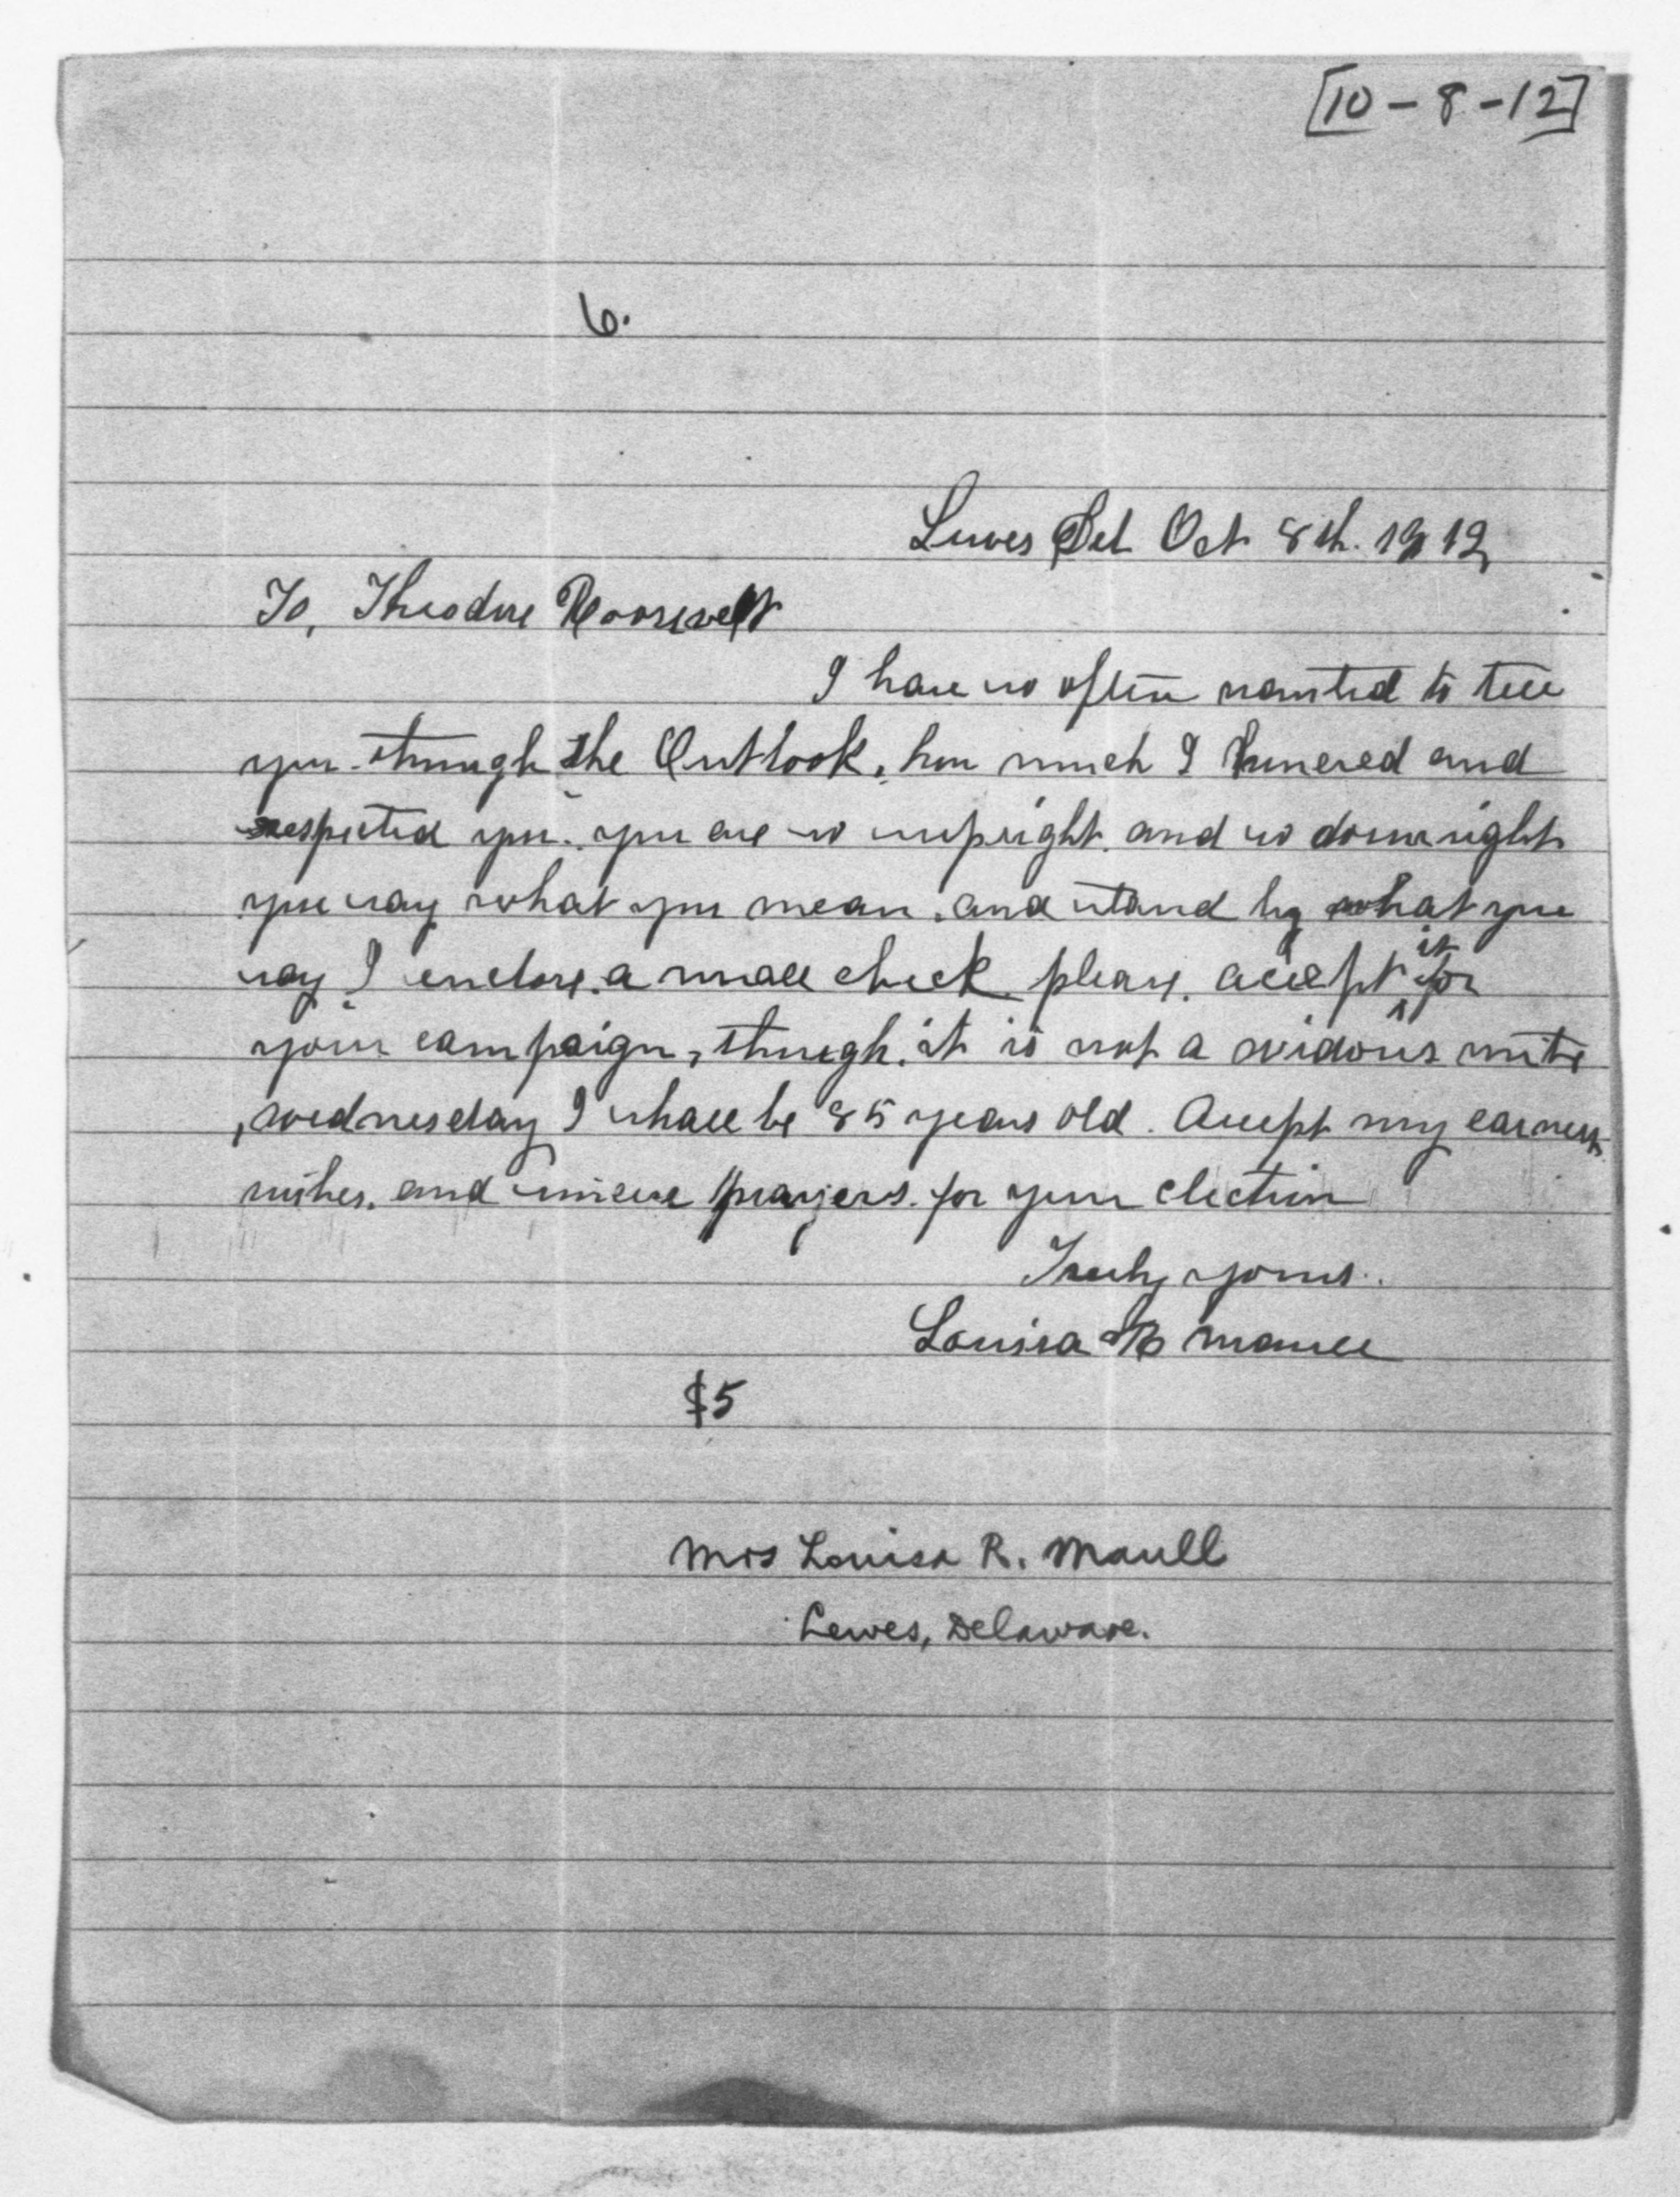 [10-8-12]
6.
Lewes Del Oct 8th. 1912
To, Theodore Roosevelt
I have so often wanted to tell
you through the Outlook, how much I honered and
respected you. you are so upright. and so downright
you say what you mean. and stand by what you
say I enclose. a small check please. accept ^it for
your campaign, though. it is not a widows mite
, wednesday I shall be 85 years old. Accept my earnest
wishes. and sincere prayers. for your election
Truly yours.
Louisa R Maull
$5
Mrs Louisa R. Maull
Lewes, Delaware.